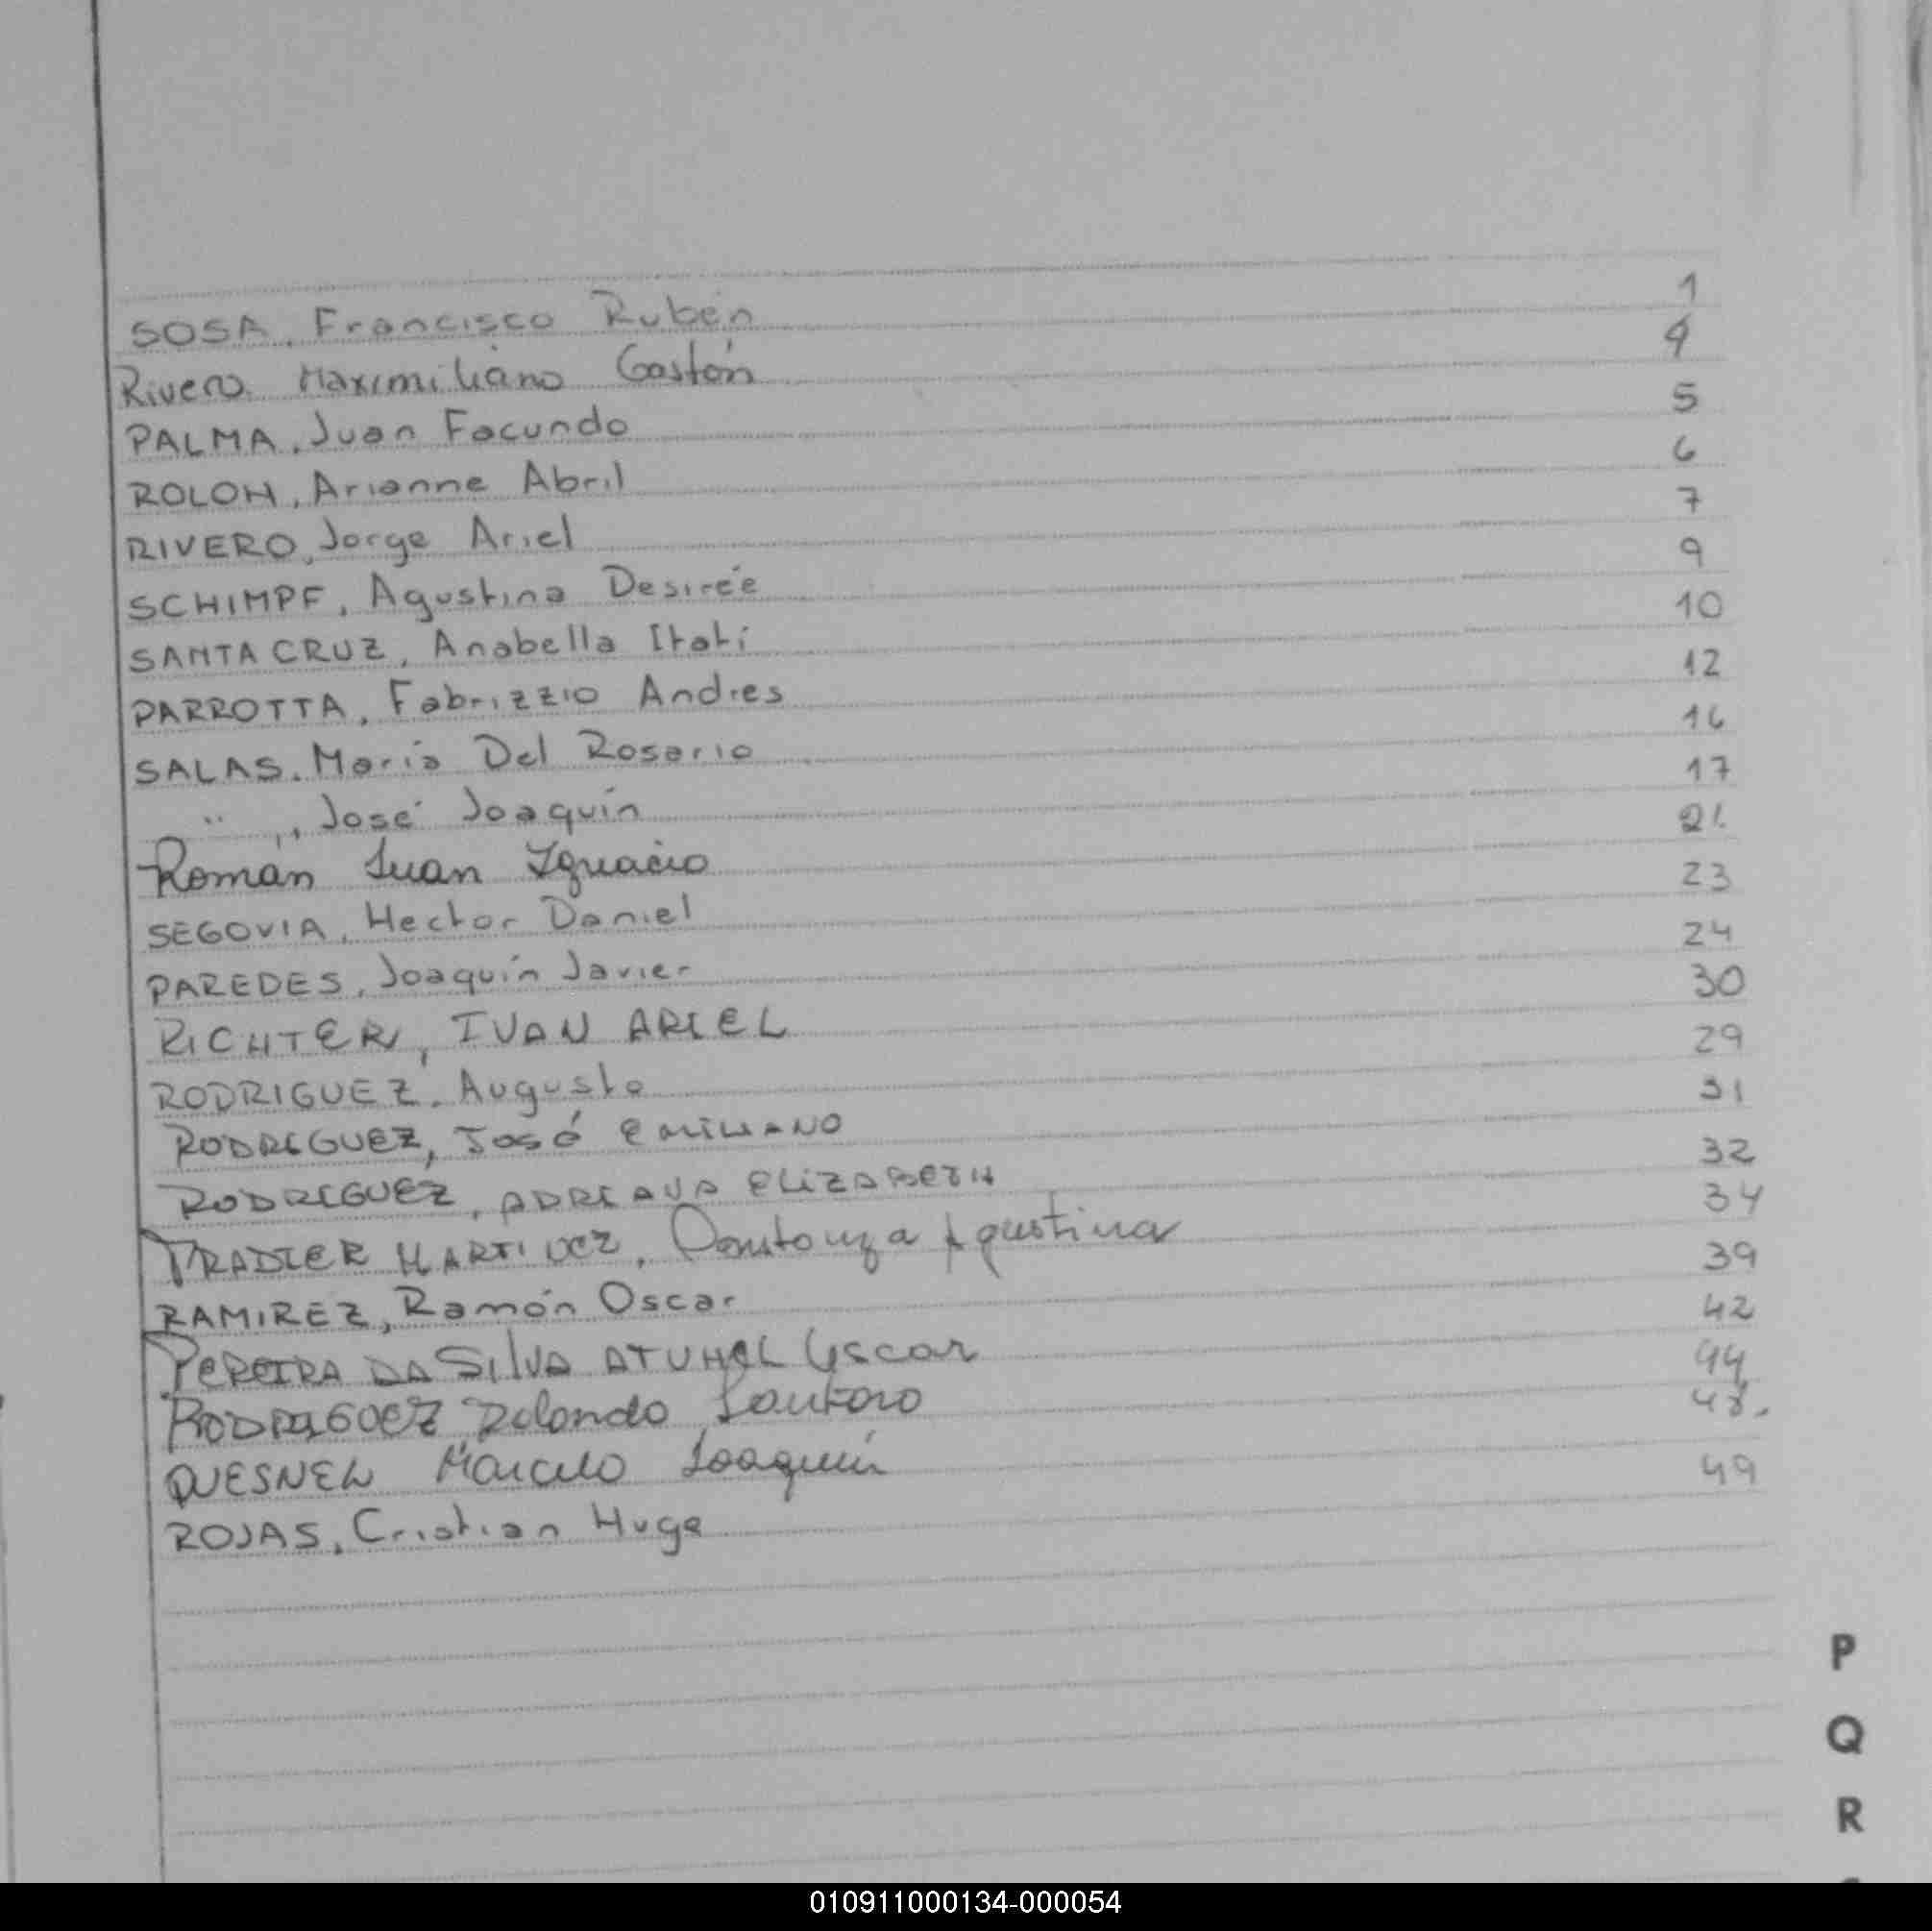 SOSA, Francisco Rubén 1
Rivero. Maximiliano Gastón 4
PALMA, Juan Facundo 5
ROLON, Arianne Abril 6
RIVERO, Jorge Ariel 7
SCHIMPF, Agustina Desireé 9
SANTA CRUZ, Anabella Itatí 10
PARROTTA, Fabrizzio Andres 12
SALAS. María Del Rosario 16
" ,, José Joaquín 17
Román Juan Ignacio 21.
SEGOVIA, Hector Daniel 23
PAREDES, Joaquín Javier 24
RICHTER, IVAN ARIEL 30
RODRIGUEZ, Augusto 29
RODRIGUEZ, José EMILIANO 31
RODRIGUEZ, ADRIANA ELIZABETH 32
PRADIER MARTINEZ, Constanza Agustina 34
RAMIREZ, Ramón Oscar 39
PEREIRA DA SILVA Oscar 42
RODRIGUEZ Rolando Lautaro 44
QUESNEL Marcelo Joaquín 48.
ROJAS, Cristian Hugo 49
P
Q
R
010911000134-000054